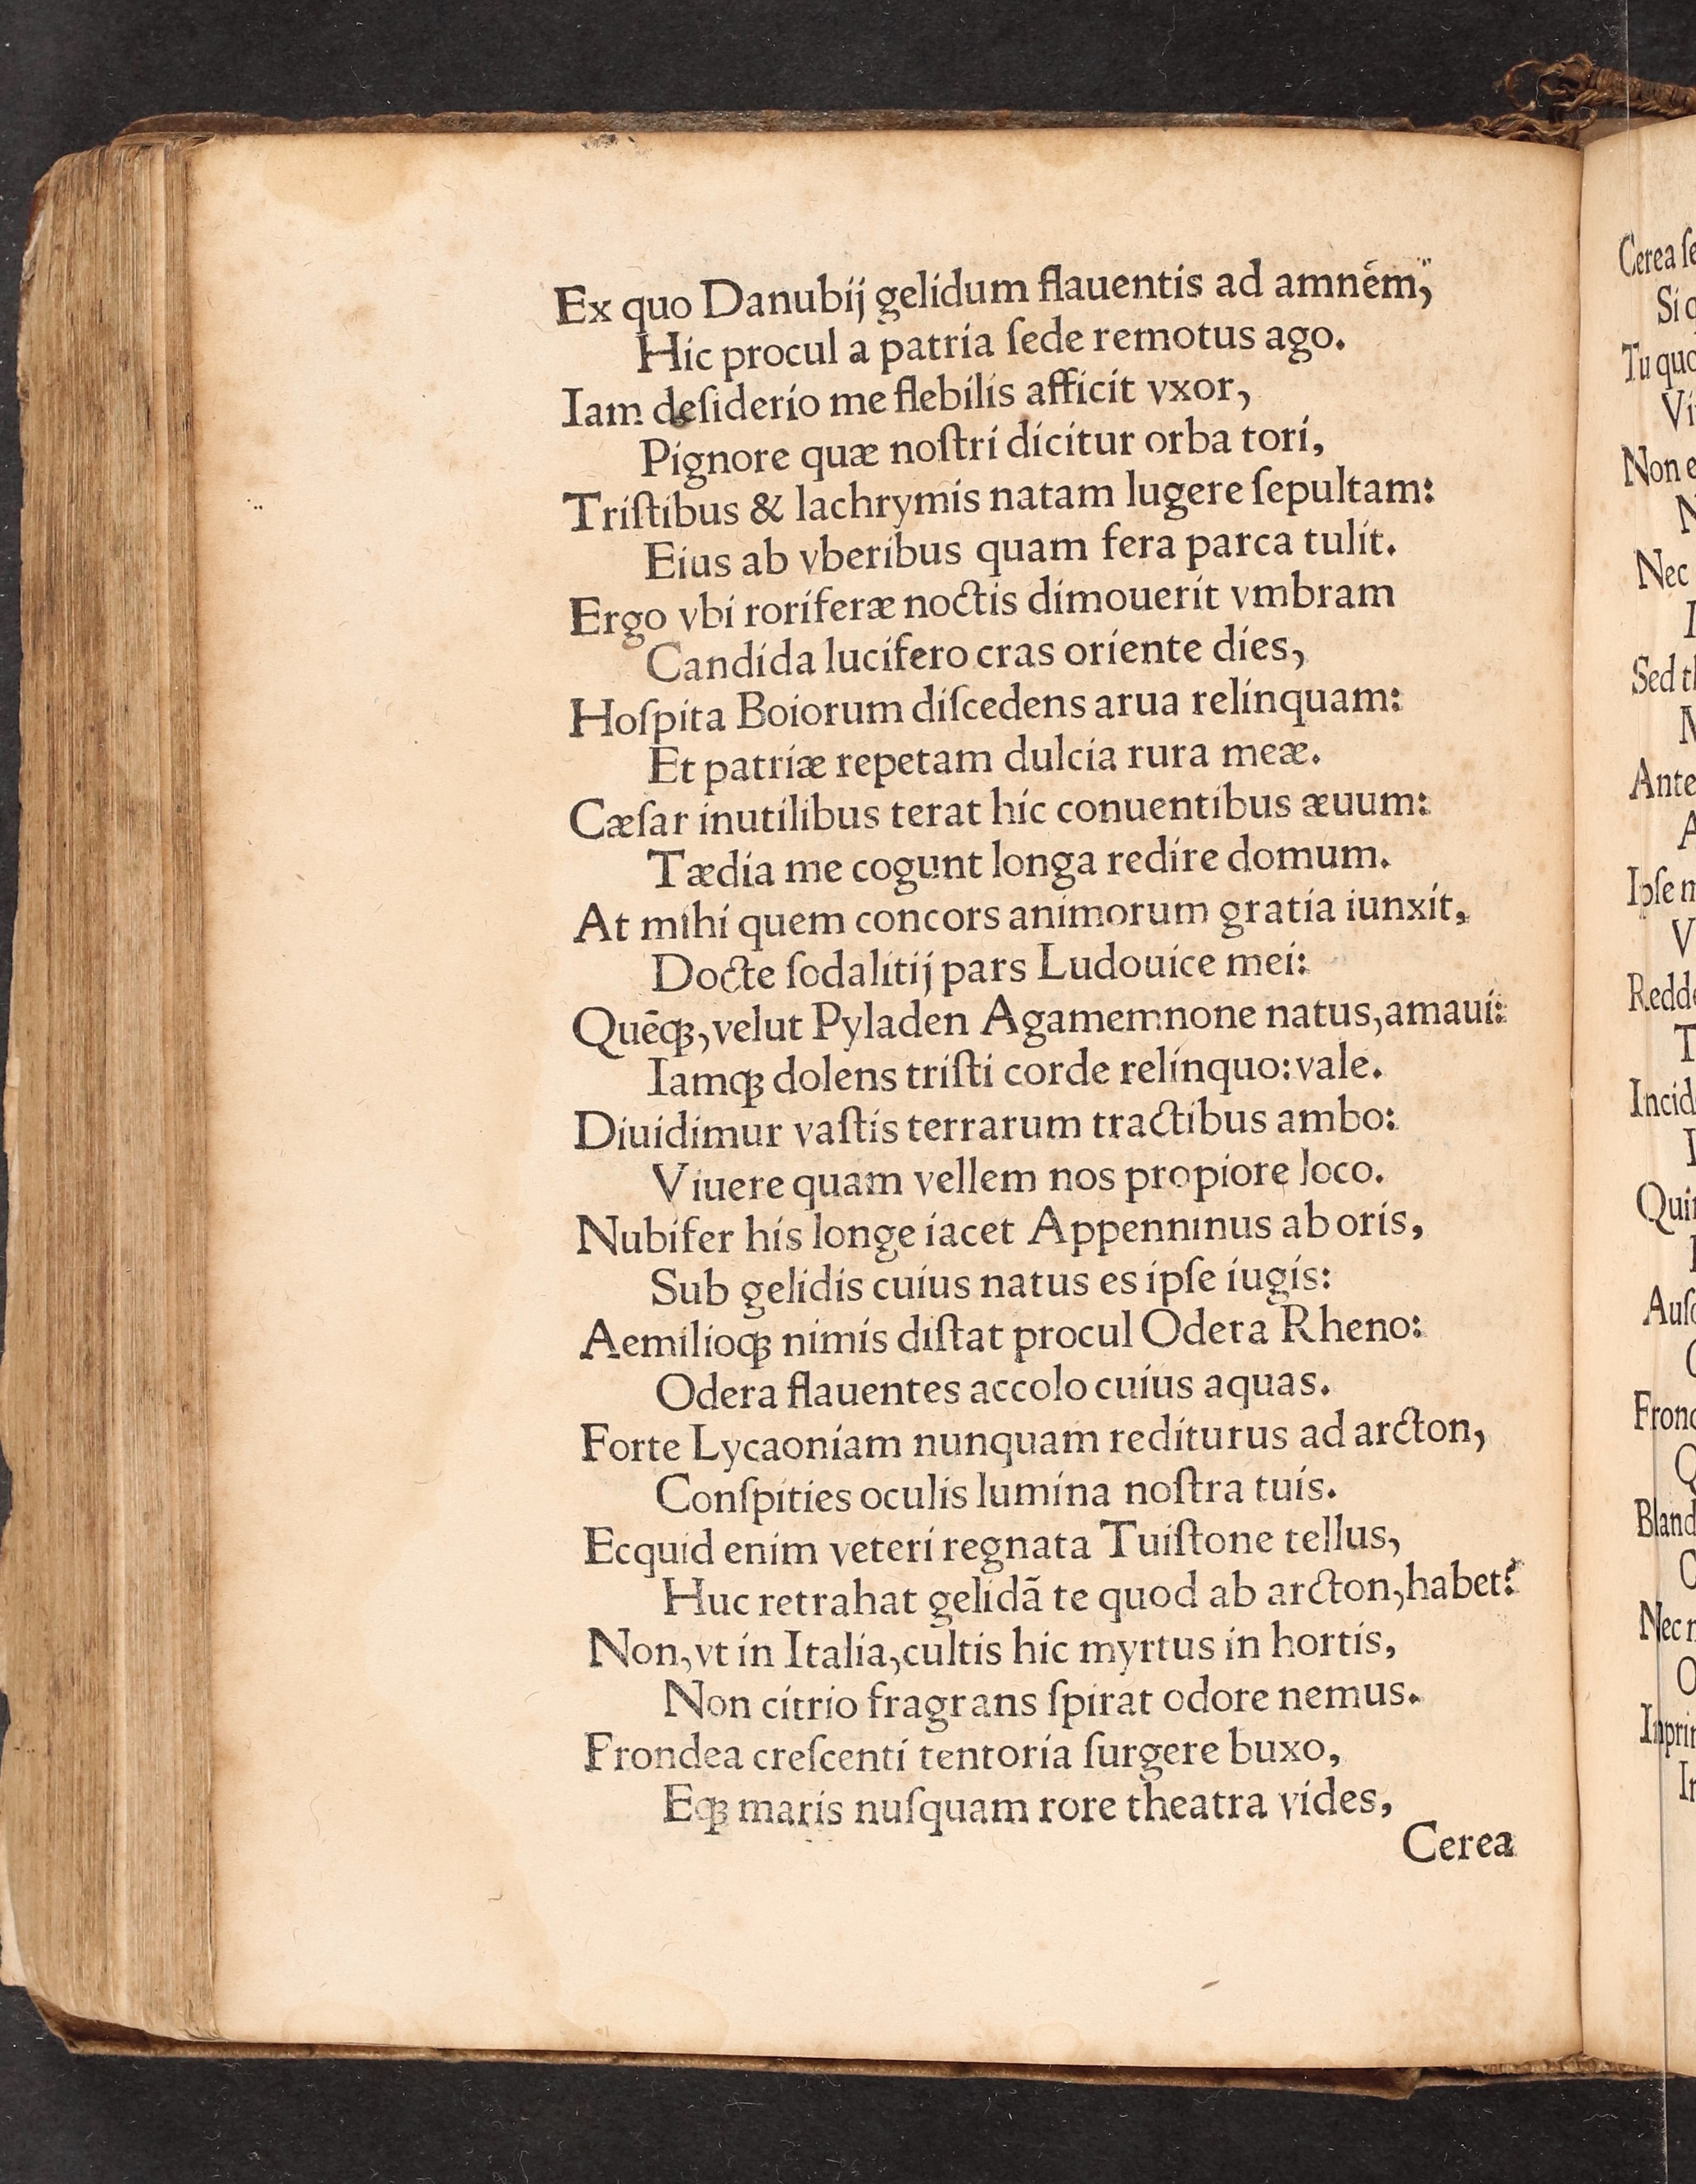 Ex quo Danubij gelidum flauentis ad amnem,
Hic procul a patria ſede remotus ago.
Iam deſiderio me flebilis afficit vxor,
Pignore quæ noſtri dicitur orba tori,
Triſtibus & lachrymis natam lugere ſepultam:
Eius ab vberibus quam fera parca tulit.
Ergo vbi roriferæ noctis dimouerit vmbram
Candida lucifero cras oriente dies,
Hoſpita Boiorum diſcedens arua relinquam:
Et patriæ repetam dulcia rura meæ.
Cæſar inutilibus terat hic conuentibus æuum:
Tædia me cogunt longa redire domum.
At mihi quem concors animorum gratia iunxit,
Docte ſodalitij pars Ludouice mei:
Quēqꝫ, velut Pyladen Agamemnone natus, amaui:
Iamqꝫ dolens triſti corde relinquo: vale.
Diuidimur vaſtis terrarum tractibus ambo:
Viuere quam vellem nos propiore loco.
Nubifer his longe iacet Appenninus ab oris,
Sub gelidis cuius natus es ipſe iugis:
Aemilioqꝫ nimis diſtat procul Odera Rheno:
Odera flauentes accolo cuius aquas.
Forte Lycaoniam nunquam rediturus ad arcton,
Conſpities oculis lumina noſtra tuis.
Ecquid enim veteri regnata Tuiſtone tellus,
Huc retrahat gelidā te quod ab arcton, habet?
Non, vt in Italia, cultis hic myrtus in hortis,
Non citrio fragrans ſpirat odore nemus.
Frondea creſcenti tentoria ſurgere buxo,
Eqꝫ maris nuſquam rore theatra vides,
Cerea
Cerea
Si
Tu
Non
Nec
Sed
Ante
Ipſe